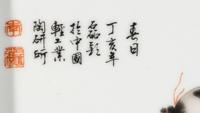 春日
丁亥年
磊彩
於中國
輕工業
陶研所